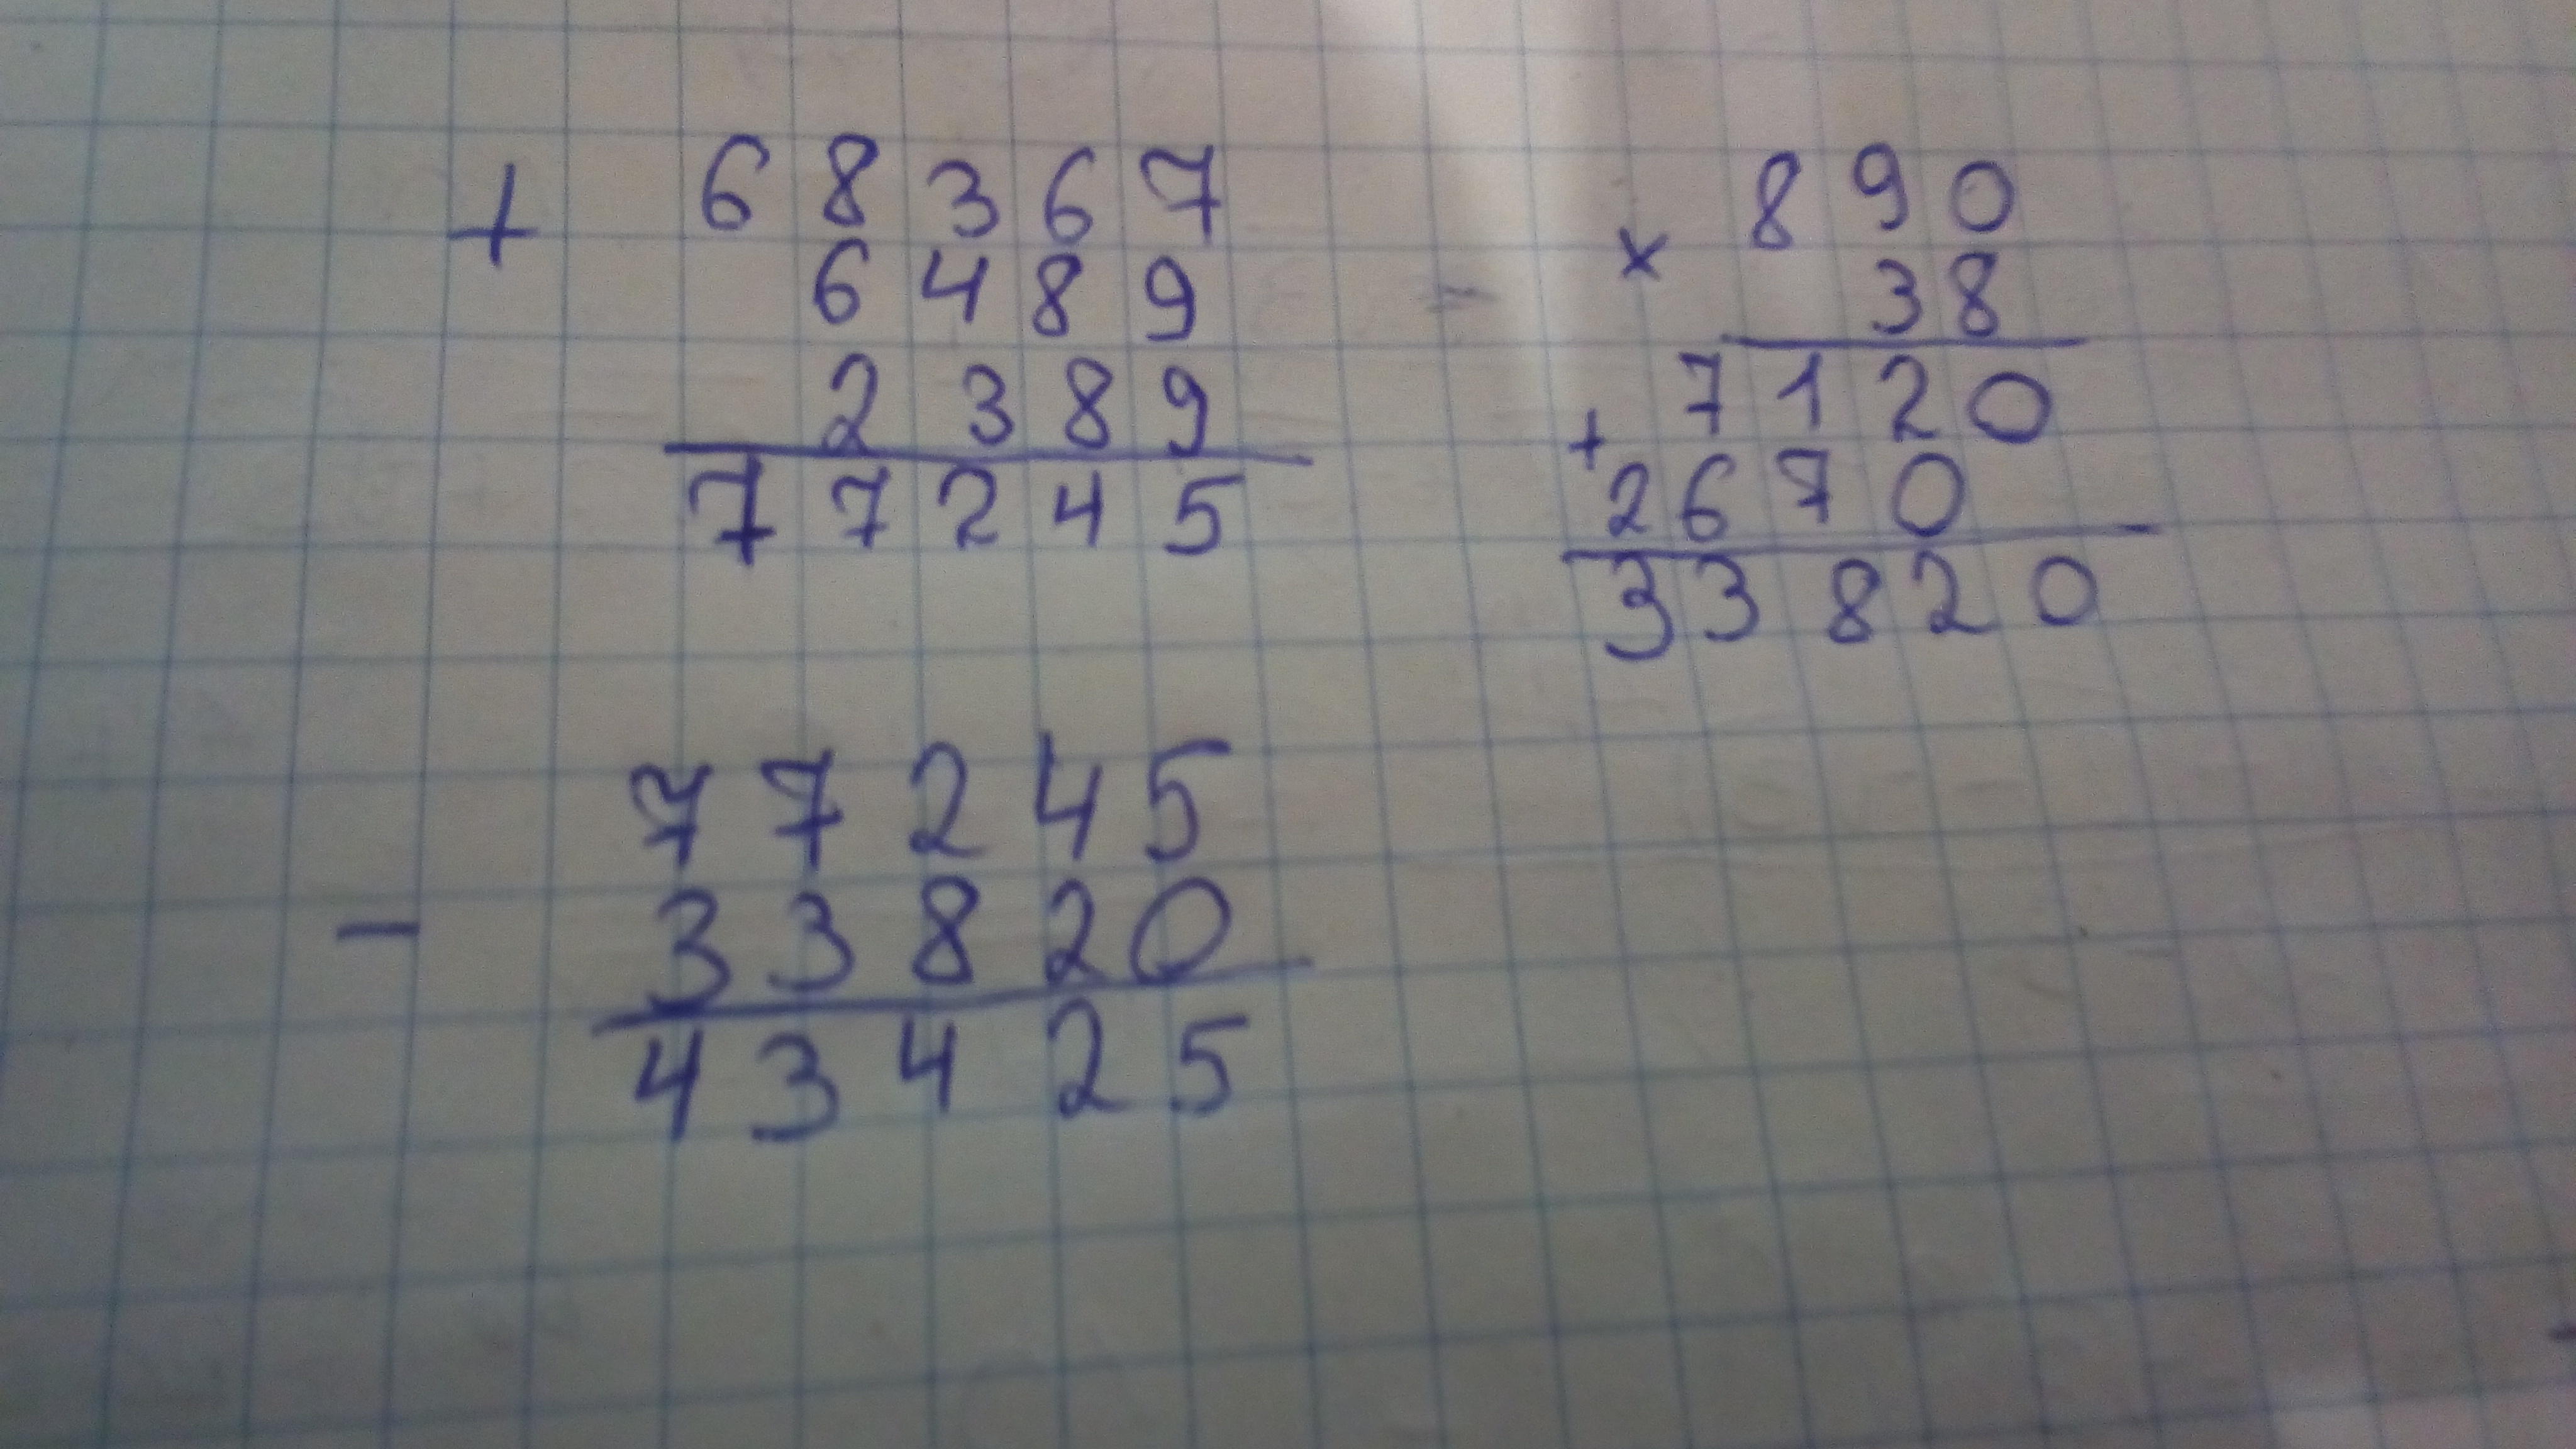 + 68367
6489
2389
77245
× 890
38
7120
+ 2670
33820
77245
− 33820
43425